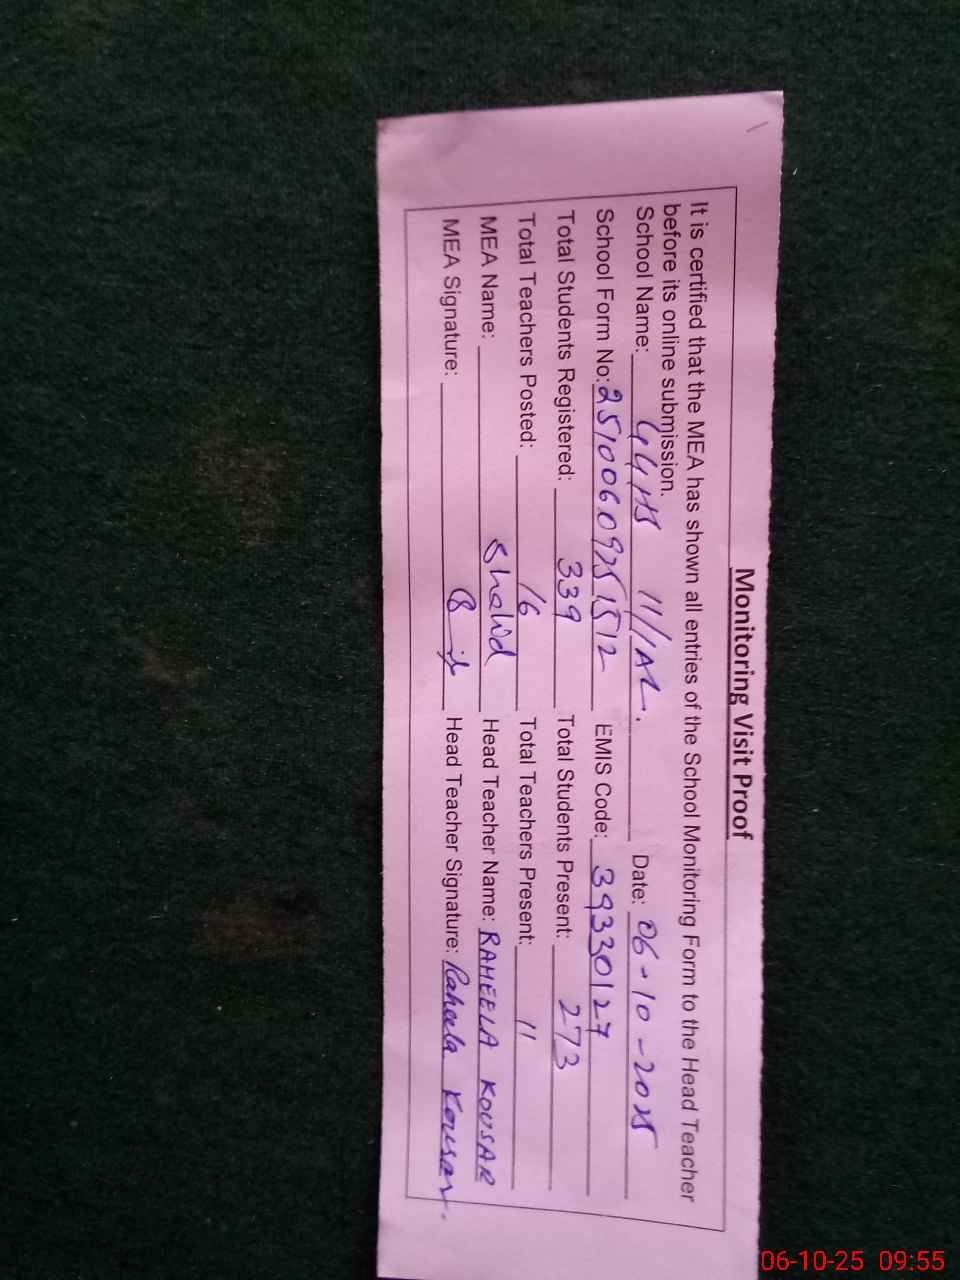 Monitoring Visit Proof
It is certified that the MEA has shown all entries of the School Monitoring Form to the Head Teacher
before its online submission.
School Name: GGHS 11/1AL. Date: 06-10-2025
School Form No: EMIS Code: 39330127
Total Students Registered: 339 Total Students Present: 273
Total Teachers Posted: 16 Total Teachers Present: 11
MEA Name: Shahid Head Teacher Name: RAHEELA KOUSAR
MEA Signature: Head Teacher Signature: Raheela Kousar.
06-10-25 09:55